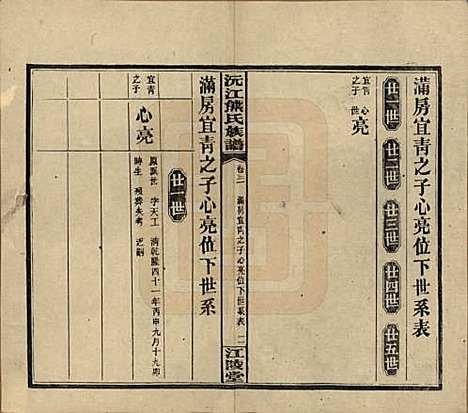 滿房宜青之子心亮位下世系表
廿一世
廿二世
廿三世
廿四世
廿五世
宜青之子
心亮
沅江熊氏族譜
卷三
滿房宜青之子心亮位下世系表
江陵堂
滿房宜青之子心亮位下世系
廿一世
宜青之子
心亮
字天工
清乾隆四十一年丙申九月十九卯時生